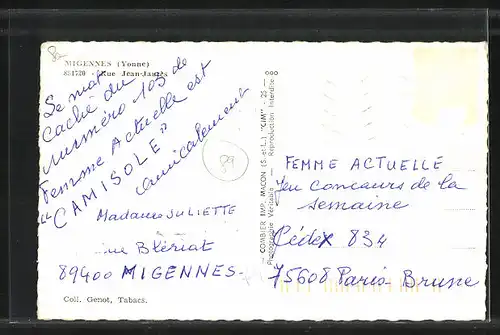 8a
MIGENNES (Yonne)
881720 - Rue Jean-Jaurès
Le mot
caché du
numéro 103 de
Femme Actuelle est
"CAMISOLE"
amicalement
89
Madame JULIETTE
rue Blériat
89400 MIGENNES.
Coll. Genot, Tabacs.
COMBIER IMP. MACON (S.-et-L.) "CIM" - 25 -
Photographie Véritable - Reproduction Interdite
FEMME ACTUELLE
Jeu concours de la
semaine
Cédex 834
75608 Paris Brune